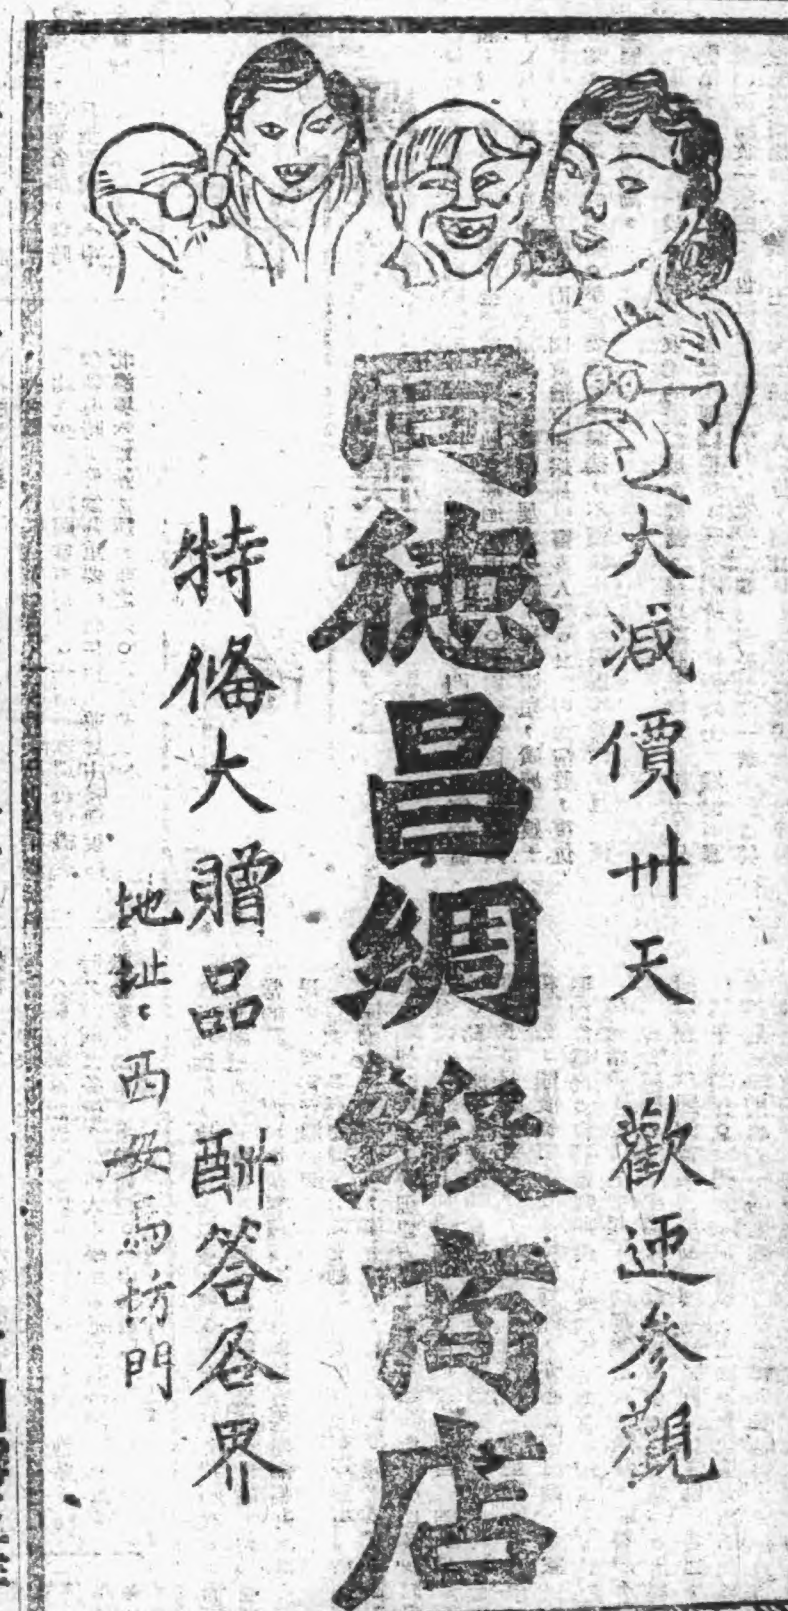 大減價卅天　歡迎參觀
同德昌綢緞商店
特備大贈品　酬答各界
地址：西安馬坊門